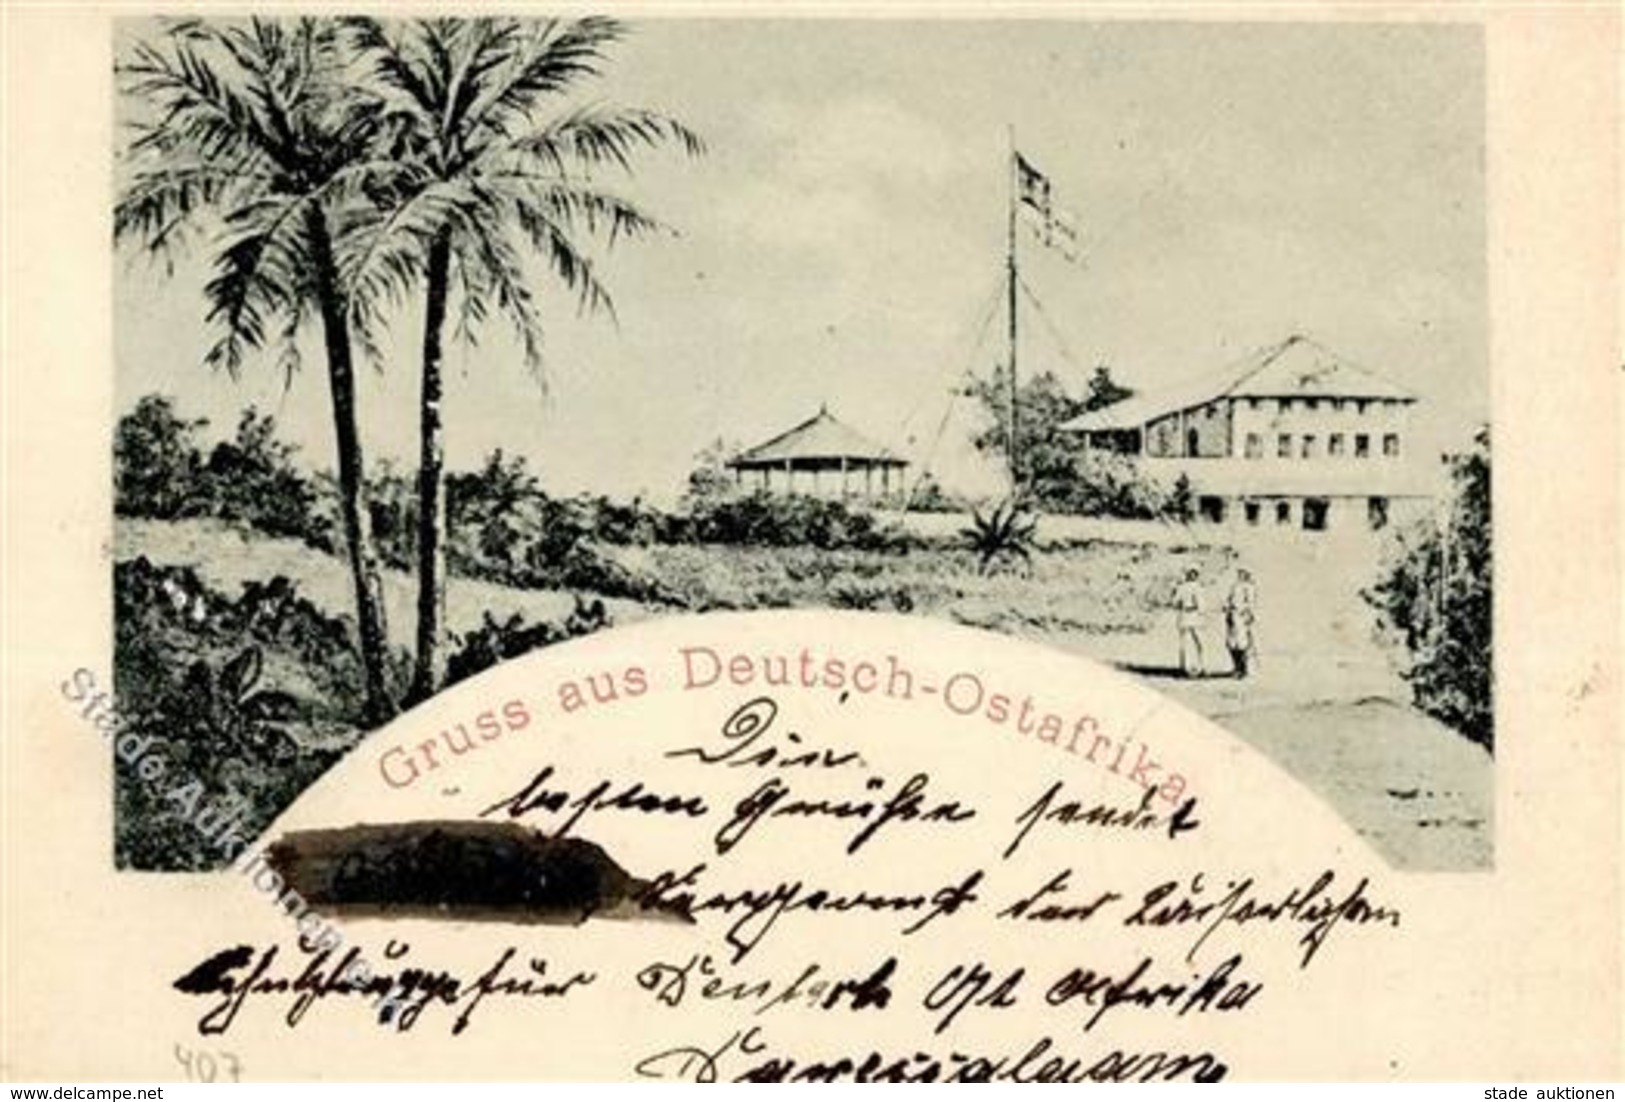 Gruss aus Deutsch-Ostafrika
Die
besten Grüße sendet
Sergeant der Kaiserlichen
Schutztruppe für Deutsch Ost Afrika
Daressalaam
407
Stade Auktionen
www.delcampe.net
stade auktionen